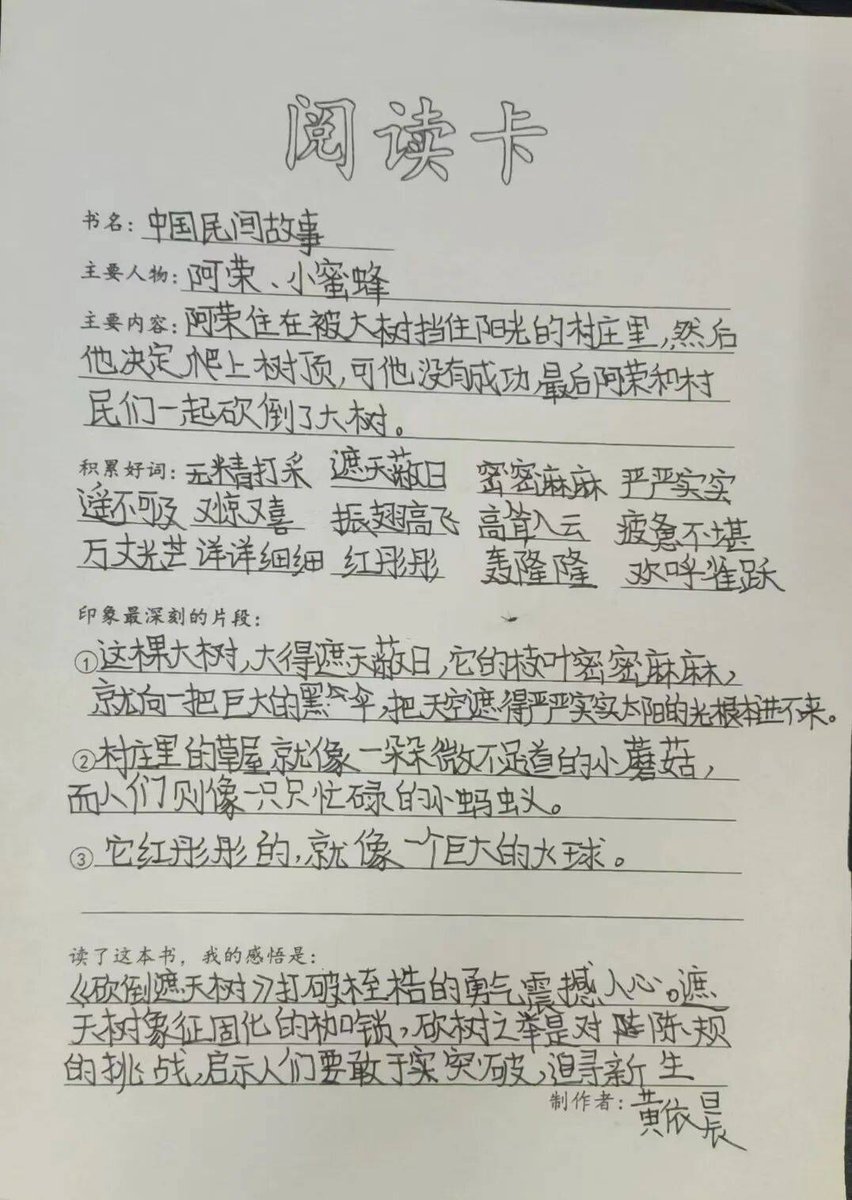 阅读卡
书名：中国民间故事
主要人物：阿荣、小蜜蜂
主要内容：阿荣住在被大树挡住阳光的村庄里，然后
他决定爬上树顶，可他没有成功，最后阿荣和村
民们一起砍倒了大树。
积累好词：无精打采 遮天蔽日 密密麻麻 严严实实
遥不可及 又惊又喜 振翅高飞 高耸入云 疲惫不堪
万丈光芒 详详细细 红彤彤 轰隆隆 欢呼雀跃
印象最深刻的片段：
①这棵大树，大得遮天蔽日，它的枝叶密密麻麻，
就向一把巨大的黑伞，把天空遮得严严实实太阳的光根本进不来。
②村庄里的草屋就像一朵朵微不足道的小蘑菇，
而人们则像一只只忙碌的小蚂蚁。
③它红彤彤的，就像一个巨大的火球。
读了这本书，我的感悟是：
《砍倒遮天树》打破桎梏的勇气震撼人心。遮
天树象征固化的枷锁，砍树之举是对陈规
的挑战，启示人们要敢于突破，追寻新生
制作者：黄依晨